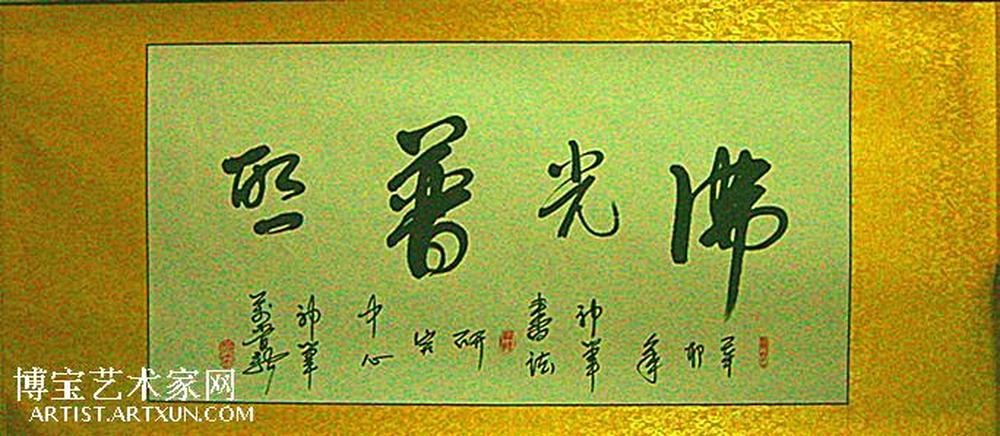 佛光普照
辛卯年
神筆
書法
研究
中心
神筆
博宝艺术家网
ARTIST.ARTXUN.COM